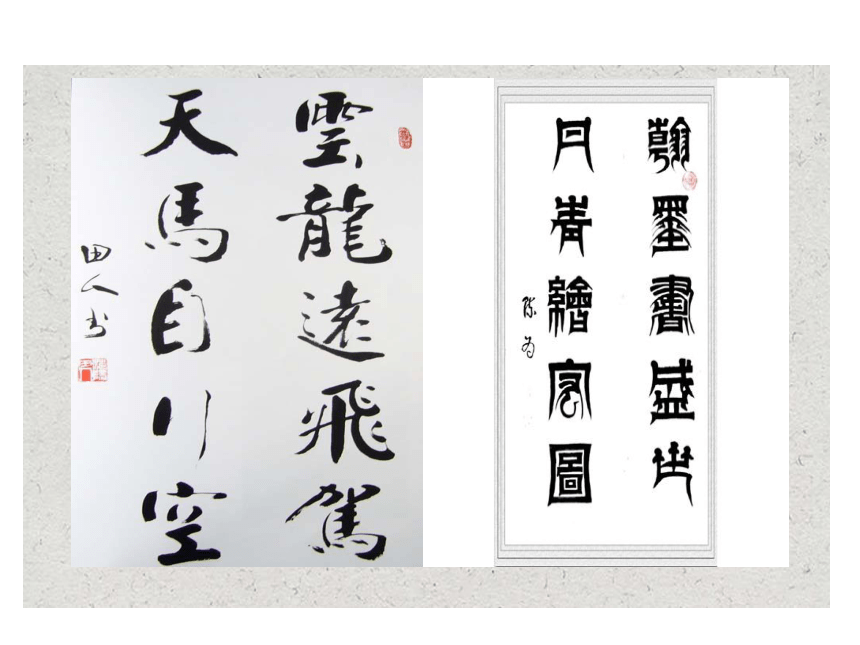 雲龍遠飛駕
天馬自行空
田人书
翰墨書盛世
丹青繪宏圖
陈为